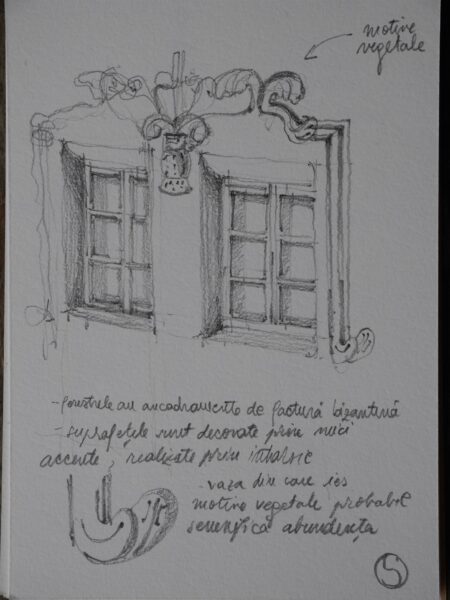 motive
vegetale
- ferestrele au ancadramente de factură bizantină
- suprafețele sunt decorate prin mici
accente, realizate prin
- vaza din care ies
motive vegetale probabil
semnifică abundența